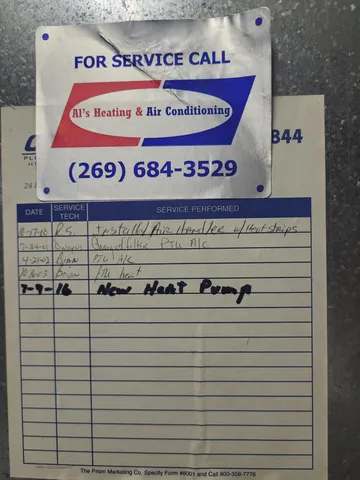 FOR SERVICE CALL
Al's Heating & Air Conditioning
(269) 684-3529
844
DATE SERVICE TECH SERVICE PERFORMED
10-17-00 R.S. Install Air Handler w/ Heat strips
7-24-01 Changed filter PTU A/C
4-21-02 Brian PTU A/C
Brian PTU heat
7-9-16 New Heat Pump
The Prism Marketing Co. Specify Form #8001 and Call 800-308-7776